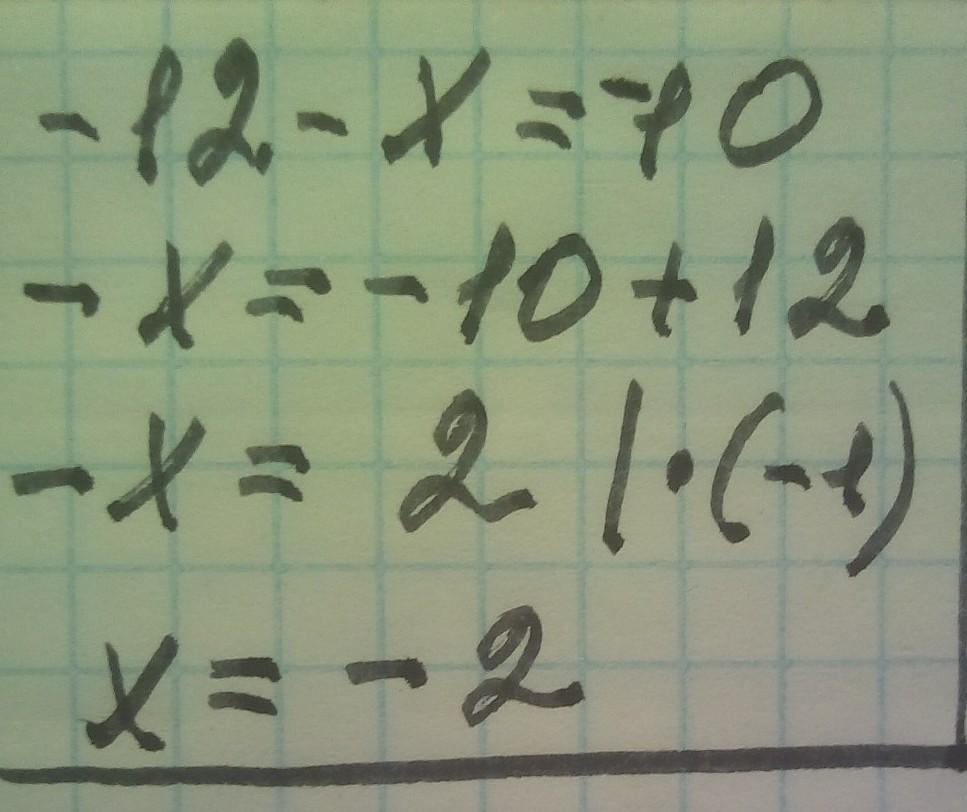 -12 - x = -10
- x = -10 + 12
- x = 2 | · (-1)
x = - 2